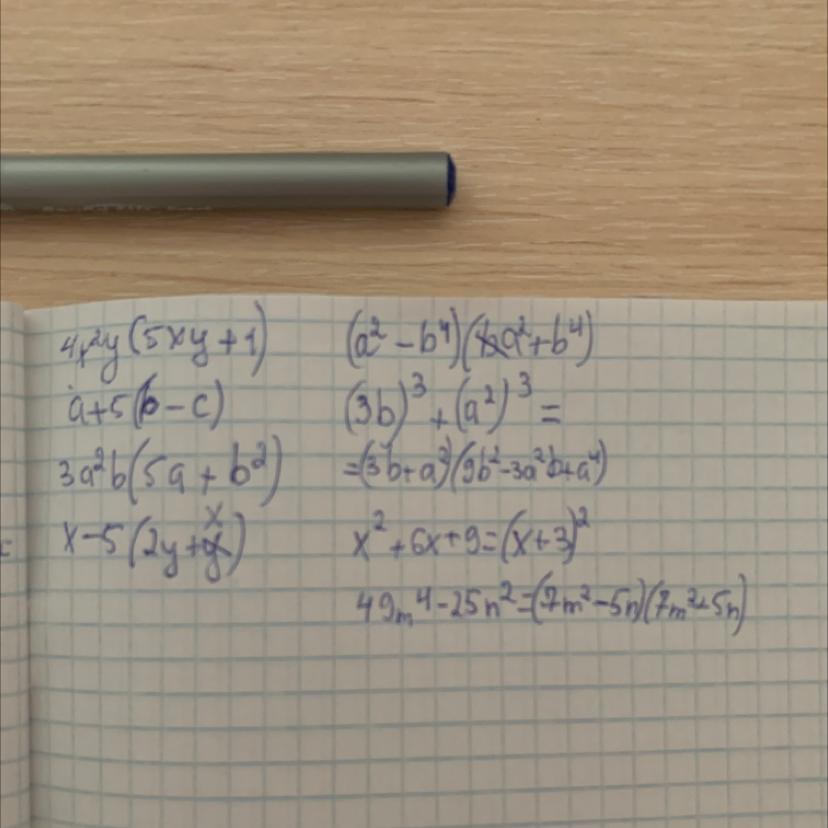 4x²y(5xy+1)
a+5(b-c)
3a²b(5a+b²)
x-5(2y+x)
(a²-b⁴)(a²+b⁴)
(3b)³+(a²)³=
=(3b+a²)(9b²-3a²b+a⁴)
x²+6x+9=(x+3)²
49m⁴-25n²=(7m²-5n)(7m²+5n)